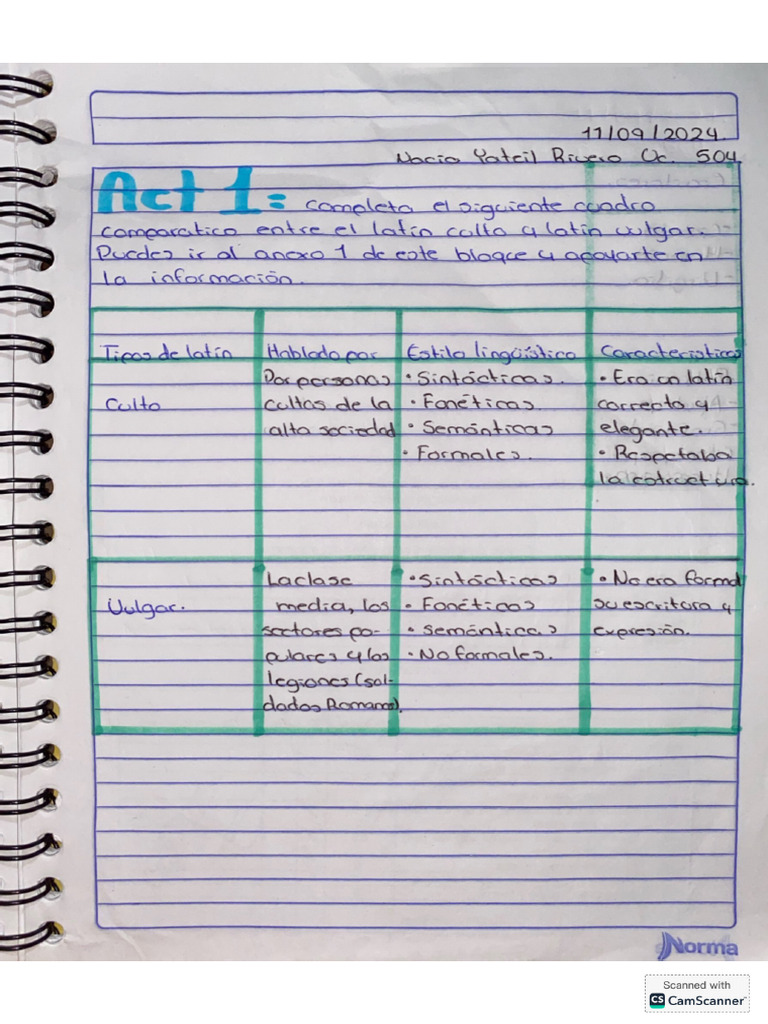 11/09/2024
Rivero Uc. 504
Act 1= Completa el siguiente cuadro
comparatico entre el latín culto y latín vulgar.
Puedes ir al anexo 1 de este bloque y apoyarte en
la información.
Tipos de latín
Hablado por
Estilo lingüístico
Caracteristicas
Culto
Por personas
cultas de la
alta sociedad
• Sintácticas.
• Fonéticas.
• Semánticas
• Formales.
• Era un latín
correcto y
elegante.
• Respetaba
la estructura.
Vulgar.
La clase
media, los
sectores po-
pulares y las
legiones (sol-
dados Romanos).
• Sintácticas
• Fonéticas
• semánticas
• No formales.
• No era formal
su escritura y
expresión.
Norma
Scanned with
CS CamScanner